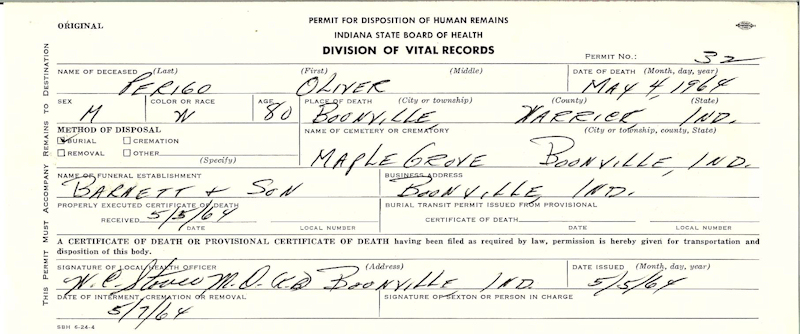 ORIGINAL
PERMIT FOR DISPOSITION OF HUMAN REMAINS
INDIANA STATE BOARD OF HEALTH
DIVISION OF VITAL RECORDS
PERMIT NO.: 32
THIS PERMIT MUST ACCOMPANY REMAINS TO DESTINATION
NAME OF DECEASED (Last) (First) (Middle) DATE OF DEATH (Month, day, year)
PERIGO OLIVER MAY 4, 1964
SEX COLOR OR RACE AGE PLACE OF DEATH (City or township) (County) (State)
M W 80 BOONVILLE, WARRICK, IND.
METHOD OF DISPOSAL NAME OF CEMETERY OR CREMATORY (City or township, county, State)
BURIAL CREMATION
REMOVAL OTHER MAPLE GROVE BOONVILLE, IND.
(Specify)
NAME OF FUNERAL ESTABLISHMENT BUSINESS ADDRESS
BARNETT + SON BOONVILLE, IND.
PROPERLY EXECUTED CERTIFICATE OF DEATH BURIAL TRANSIT PERMIT ISSUED FROM PROVISIONAL
RECEIVED 5/5/64 CERTIFICATE OF DEATH
DATE LOCAL NUMBER DATE LOCAL NUMBER
A CERTIFICATE OF DEATH OR PROVISIONAL CERTIFICATE OF DEATH having been filed as required by law, permission is hereby given for transportation and
disposition of this body.
SIGNATURE OF LOCAL HEALTH OFFICER (Address) DATE ISSUED (Month, day, year)
W. C. Stover M.D. BOONVILLE, IND 5/5/64
DATE OF INTERMENT, CREMATION OR REMOVAL SIGNATURE OF SEXTON OR PERSON IN CHARGE
5/7/64
SBH 6-24-4